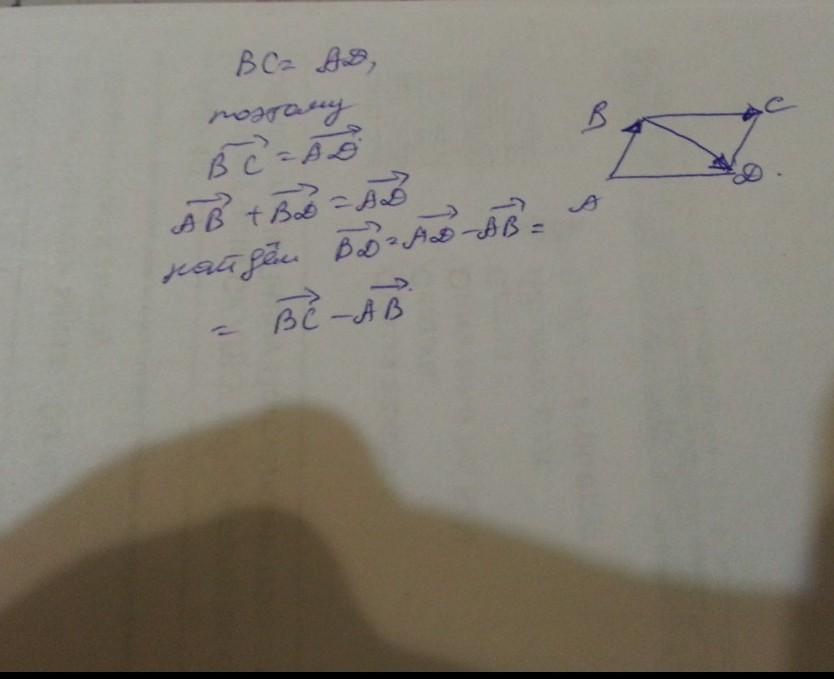 BC = AD,
поэтому
B⃗C⃗ = A⃗D⃗
A⃗B⃗ + B⃗D⃗ = A⃗D⃗
найдём B⃗D⃗ = A⃗D⃗ – A⃗B⃗ =
= B⃗C⃗ – A⃗B⃗.
B C
A D.